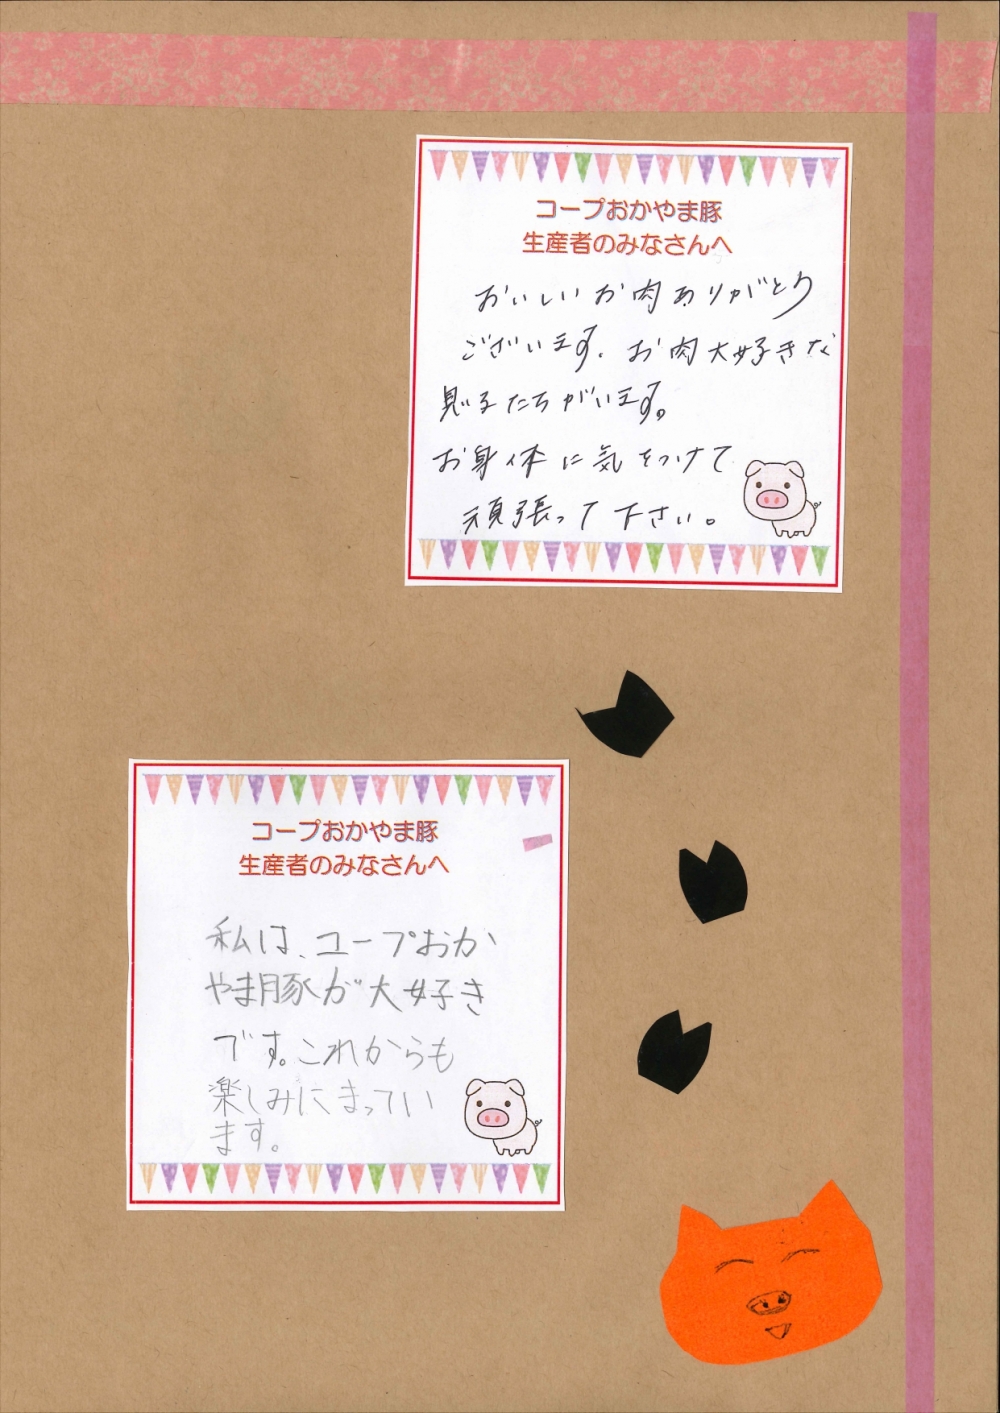 コープおかやま豚
生産者のみなさんへ
おいしいお肉ありがとう
ございます。お肉大好きな
息子たちがいます。
お身体に気をつけて
頑張って下さい。
コープおかやま豚
生産者のみなさんへ
私は、コープおか
やま豚が大好き
です。これからも
楽しみにまってい
ます。